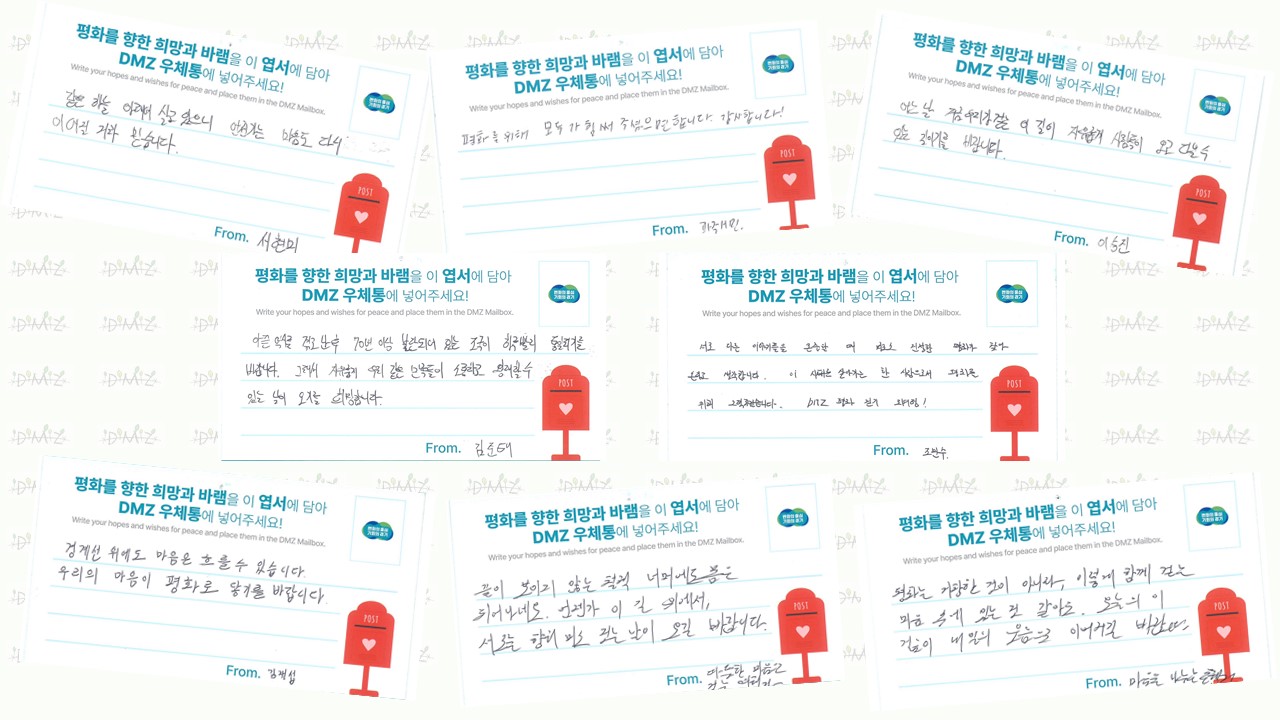 평화를 향한 희망과 바램을 이 엽서에 담아
DMZ 우체통에 넣어주세요!
Write your hopes and wishes for peace and place them in the DMZ Mailbox.
같은 하늘 아래서 살고 있으니 언젠가는 마음도 다시
이어질 거라 믿습니다.
POST
From. 서현미
평화를 향한 희망과 바램을 이 엽서에 담아
DMZ 우체통에 넣어주세요!
Write your hopes and wishes for peace and place them in the DMZ Mailbox.
평화를 위해 모두가 힘써 주셨으면 합니다. 감사합니다!
POST
From.
평화를 향한 희망과 바램을 이 엽서에 담아
DMZ 우체통에 넣어주세요!
Write your hopes and wishes for peace and place them in the DMZ Mailbox.
어느 날 지금 우리가 걷는 이 길이 자유롭게 사람들이 오고 갈 수
있는 길이기를 바랍니다.
POST
From. 이승진
평화를 향한 희망과 바램을 이 엽서에 담아
DMZ 우체통에 넣어주세요!
Write your hopes and wishes for peace and place them in the DMZ Mailbox.
70년 이상 분단되어 있는 조국이 하루빨리 통일되기를
바랍니다. 그래서 자유롭게 우리 같은 민족들이 소통하고 왕래할 수
있는 날이 오기를 희망합니다.
POST
From. 김준태
평화를 향한 희망과 바램을 이 엽서에 담아
DMZ 우체통에 넣어주세요!
Write your hopes and wishes for peace and place them in the DMZ Mailbox.
서로 다른 이야기들을 존중할 때 비로소 진정한 평화가 찾아
온다고 생각합니다. 이 시대를 살아가는 한 사람으로서 평화를
위해 DMZ 평화 걷기 화이팅!
POST
From.
평화를 향한 희망과 바램을 이 엽서에 담아
DMZ 우체통에 넣어주세요!
Write your hopes and wishes for peace and place them in the DMZ Mailbox.
경계선 위에도 마음은 흐를 수 있습니다.
우리의 마음이 평화로 닿기를 바랍니다.
POST
From.
평화를 향한 희망과 바램을 이 엽서에 담아
DMZ 우체통에 넣어주세요!
Write your hopes and wishes for peace and place them in the DMZ Mailbox.
끝이 보이지 않는 철책 너머에도 봄은
피어나네요. 언젠가 이 길 위에서,
서로를 향해 걷는 날이 오길 바랍니다.
POST
From. 따뜻한 마음으로
평화를 향한 희망과 바램을 이 엽서에 담아
DMZ 우체통에 넣어주세요!
Write your hopes and wishes for peace and place them in the DMZ Mailbox.
평화는 거창한 것이 아니라, 이렇게 함께 걷는
마음 속에 있는 것 같아요. 오늘의 이
걸음이 내일의 웃음으로 이어지길 바란다.
POST
From. 마음을 나누는